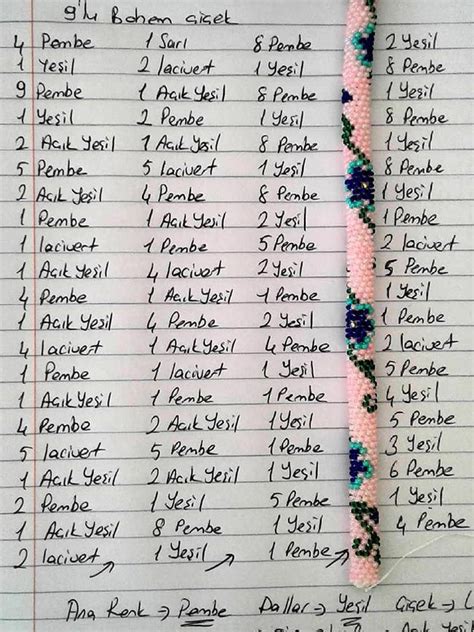 9'lu Bohem Çiçek
4 Pembe
1 Yeşil
9 Pembe
1 Yeşil
2 Açık Yeşil
5 Pembe
2 Açık Yeşil
1 Pembe
1 lacivert
1 Açık Yeşil
4 Pembe
1 Açık Yeşil
4 lacivert
1 Pembe
1 Açık Yeşil
4 Pembe
5 lacivert
1 Açık Yeşil
2 Pembe
1 Açık Yeşil
2 lacivert
1 Sarı
2 lacivert
1 Açık Yeşil
2 Pembe
1 Açık Yeşil
5 lacivert
4 Pembe
1 Açık Yeşil
1 Pembe
4 lacivert
1 Açık Yeşil
4 Pembe
1 Açık Yeşil
1 lacivert
1 Pembe
2 Açık Yeşil
5 Pembe
2 Açık Yeşil
1 Yeşil
8 Pembe
1 Yeşil
8 Pembe
1 Yeşil
8 Pembe
1 Yeşil
8 Pembe
1 Yeşil
8 Pembe
2 Yeşil
5 Pembe
2 Yeşil
1 Pembe
2 Yeşil
4 Pembe
1 Yeşil
1 Pembe
1 Yeşil
1 Pembe
1 Yeşil
5 Pembe
1 Yeşil
1 Pembe
2 Yeşil
8 Pembe
1 Yeşil
8 Pembe
1 Yeşil
8 Pembe
1 Yeşil
1 Pembe
2 lacivert
5 Pembe
1 Yeşil
1 Pembe
2 lacivert
5 Pembe
4 Yeşil
5 Pembe
3 Yeşil
6 Pembe
1 Yeşil
4 Pembe
Ana Renk → Pembe Dallar → Yeşil Çiçek →